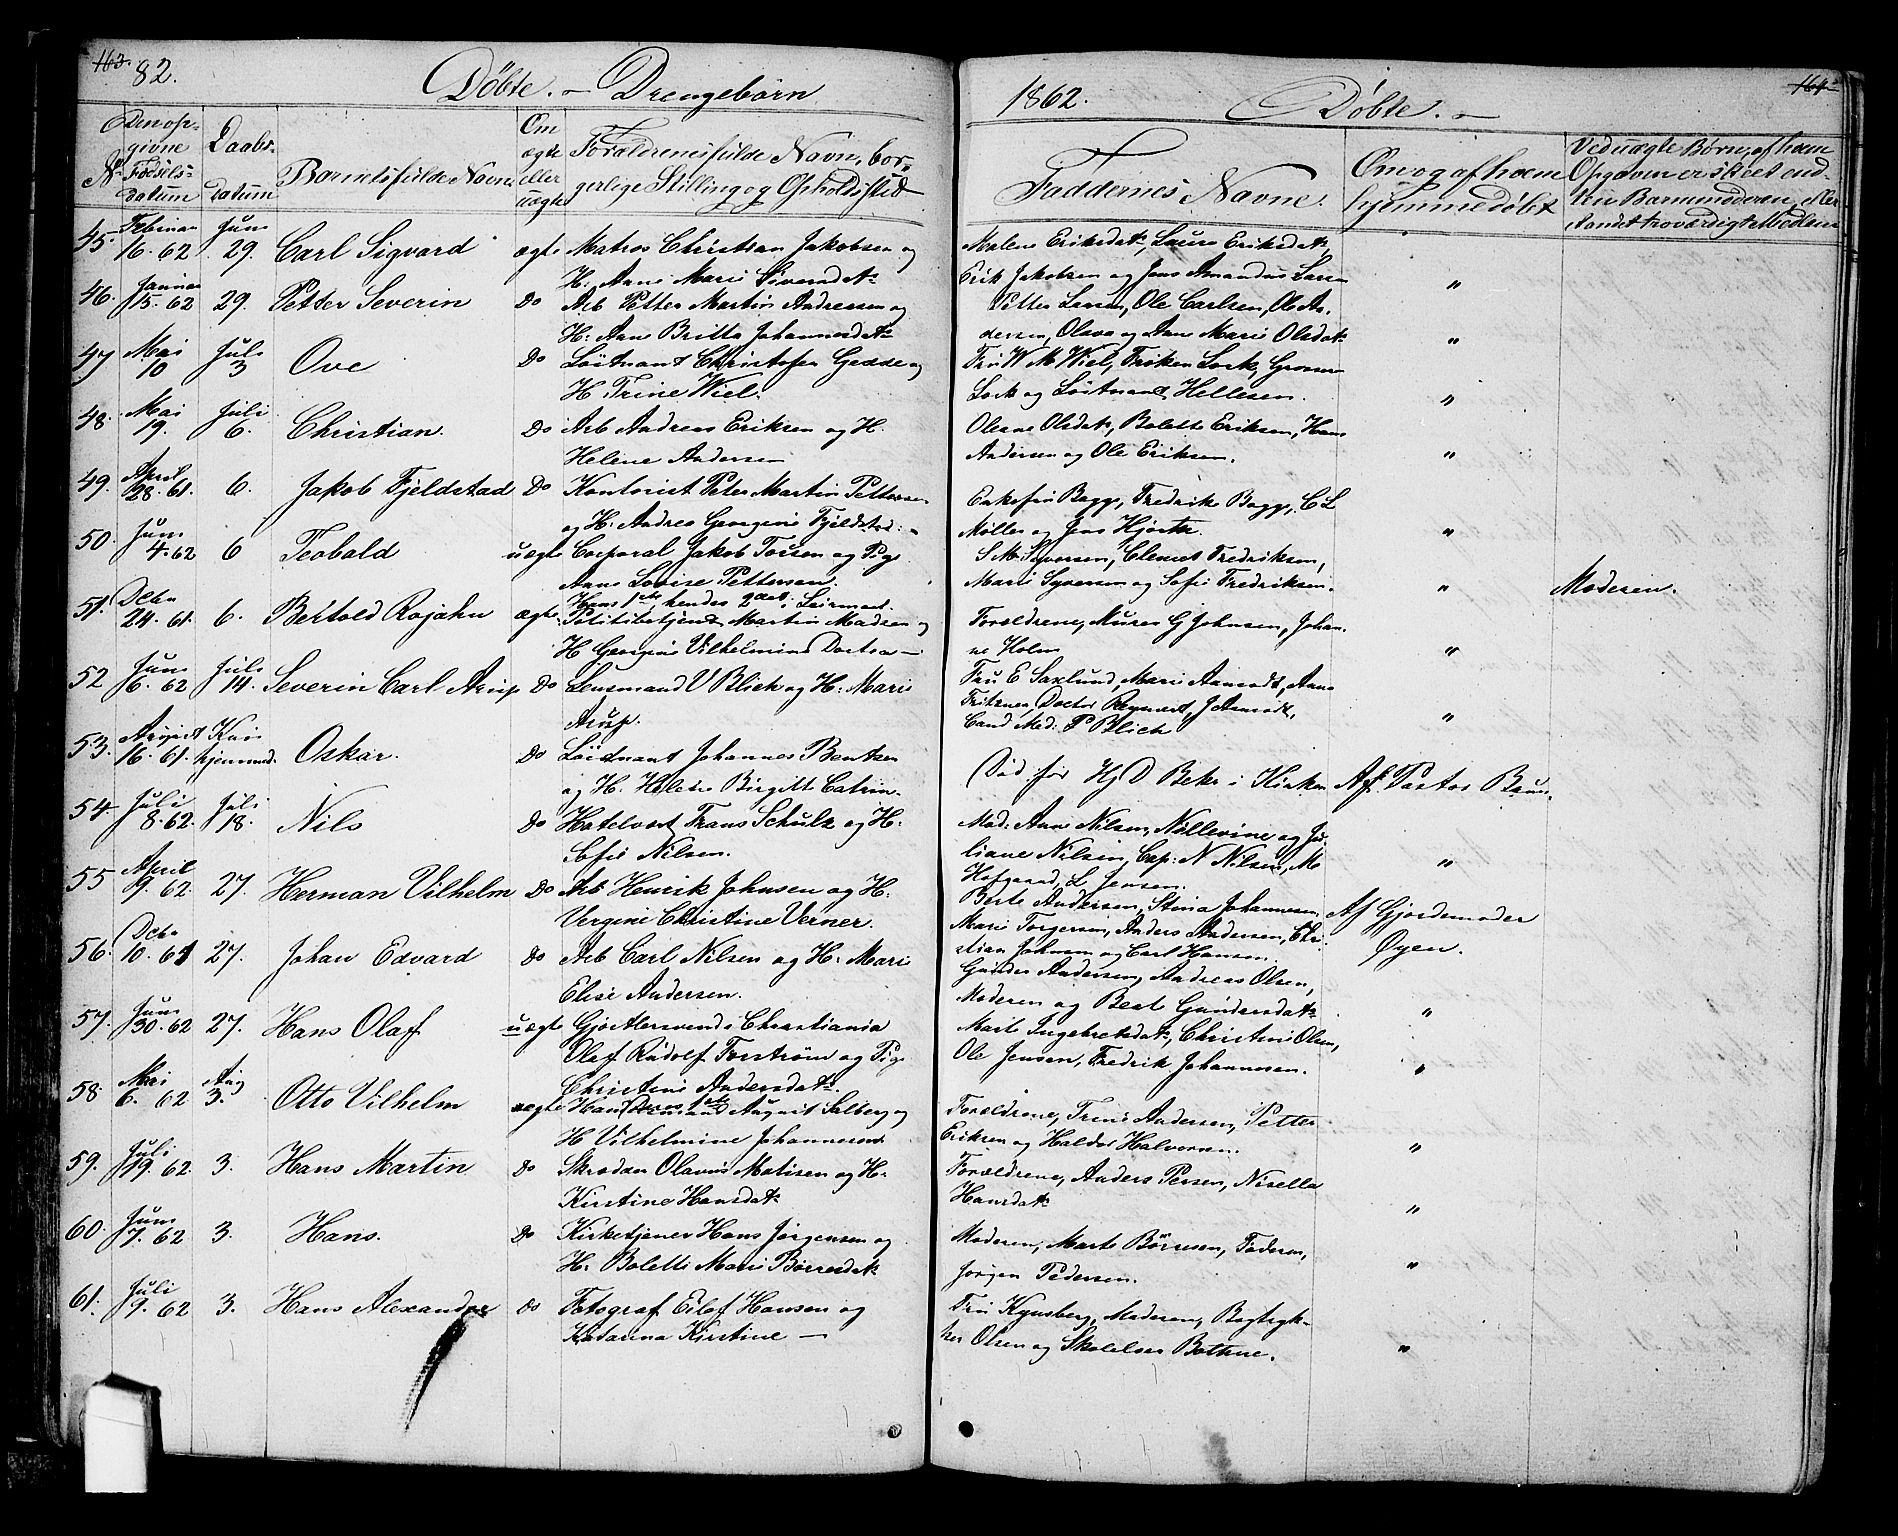 163. 82. Döbte. - Drengebörn
Nr Den opgivne Födselsdatum
Daabsdatum
Barnets fulde Navn
Om ægte eller uægte
Forældrenes fulde Navn, borgerlige Stilling og Opholdssted
45. Februar 16. 62 Juni 29. Carl Sigvard ægte Matros Christian Jakobsen og
H. Anne Marie Siversdatr
46. Januar 15. 62 29. Petter Severin Do Arb Petter Martin Andreasen og
H. Ane Britta Johannesdatr
47 Mai 10 Juli 3 Ove Do Löitnant Christofer Gedde og
H Trine Wiel.
48. Mai 19. Juli 6. Christian. Do Arb Andreas Eriksen og H.
Helene Andersen
49. April 28. 61. 6. Jakob Fjeldstad Do Kontorist Peter Martin Pettersen
og H. Andrea Georgine Fjeldstad.
50. Juni 4. 62 6 Teobald uægte Corporal Jakob Torsen og Pige
Anne Lovise Pettersen.
Hans 1ste, hendes 2det Leiermaal.
51. Debr 24. 61. 6. Bertold Rojahn ægte Politibetjent Martin Madsen og
H Georgine Vilhelmine
52 Juni 6. 62 Juli 14. Severin Carl Arup Do Lensmand V Blich og H. Marie
Arup.
53. August 16. 61. Kun hjemmed. Oskar. Do Löitnant Johannes Bentzen
og H. Helene Birgitte Catrin.
54. Juli 8. 62. Juli 18. Nils Do Hotelvært Frans Schulz og H.
Sofie Nilsen.
55 April 9. 62 27. Herman Vilhelm Do Arb Henrik Johnsen og H.
Vergine Christine Verner.
56. Debr 10. 61 27. Johan Edvard do Arb Carl Nilsen og H. Marie
Elise Andersen.
57. Juni 30. 62 27. Hans Olaf uægte Gjörtlersvend i Christiania
Olaf Rudolf Forström og Pige
Christine Andersdatr.
58. Mai 6. 62 Aug 3. Otto Vilhelm ægte August Salberg og
H Vilhelmine Johannesen
59. Juli 19. 62 3. Hans Martin do Skrædder Olavus Matisen og H.
Kirstine Hansdatr
60. Juni 7. 62 3. Hans. Do Kirketjener Hans Jörgensen og
H. Bolette Marie Börresdatr
61. Juli 9. 62 3. Hans Alexander do Fotograf Eilef Hansen og
Katarina Kirstine —
1862. Döbte. - 164
Faddernes Navne.
Om og af hvem hjemmedöbt
Ved uægte Börn, af hvem Opgaven er skeet, enten Barnemoderen, eller andet troværdigt Medium
Malene Eriksdatr, Laura Eriksdatr,
Erik Jakobsen og Jens Amandus Larsen "
Petter Larsen, Ole Carlsen, Ole Andersen, Olava og Anne Marie Olsdatr "
Fru W M Wiel, Fröken Lork, Grosser
Lork og Löitnand Hellesen. "
Oleane Olsdatr, Bolette Eriksen, Hans
Andersen og Ole Eriksen. "
Enkefru Bagge, Fredrik Bagge, C L
Möller og Jens Hjorth. "
S M Syversen, Clemet Fredriksen,
Marie Syversen og Sofie Fredriksen. " Moderen.
Forældrene, Murer G Johnsen, Johanne Holm "
Fru E Saxlund, Marie Aamodt, Anne
Fritzner, Doctor Reymert, J Aamodt,
Cand Med: P Blich "
Död för Hj D Bekr i Kirken Af Pastor Bruun.
Mad: Anne Nilsen, Nillevine og Juliane Nilsen, Cap: N Nilsen, M
Hofgaard, L Jensen. "
Berte Andersen, Stina Johannesen,
Marie Torgersen, Anders Andersen, Christian Johnsen og Carl Hansen. Af Gjordemoder Öyen.
Gunder Andersen, Andreas Olsen,
Moderen og Beate Gundersdatr "
Marte Ingebretsdatr, Christine Olsen,
Ole Jensen, Fredrik Johannesen. "
Forældrene, Trine Andersen, Petter
Eriksen og Haldor Halvorsen. "
Forældrene, Anders Persen, Nisella
Hansdatr "
Moderen, Marte Börresen, Faderen,
Jörgen Pedersen. "
Fru Kynsberg, Moderen, Bogtrykker Olsen og Skolelærer Bothne. "